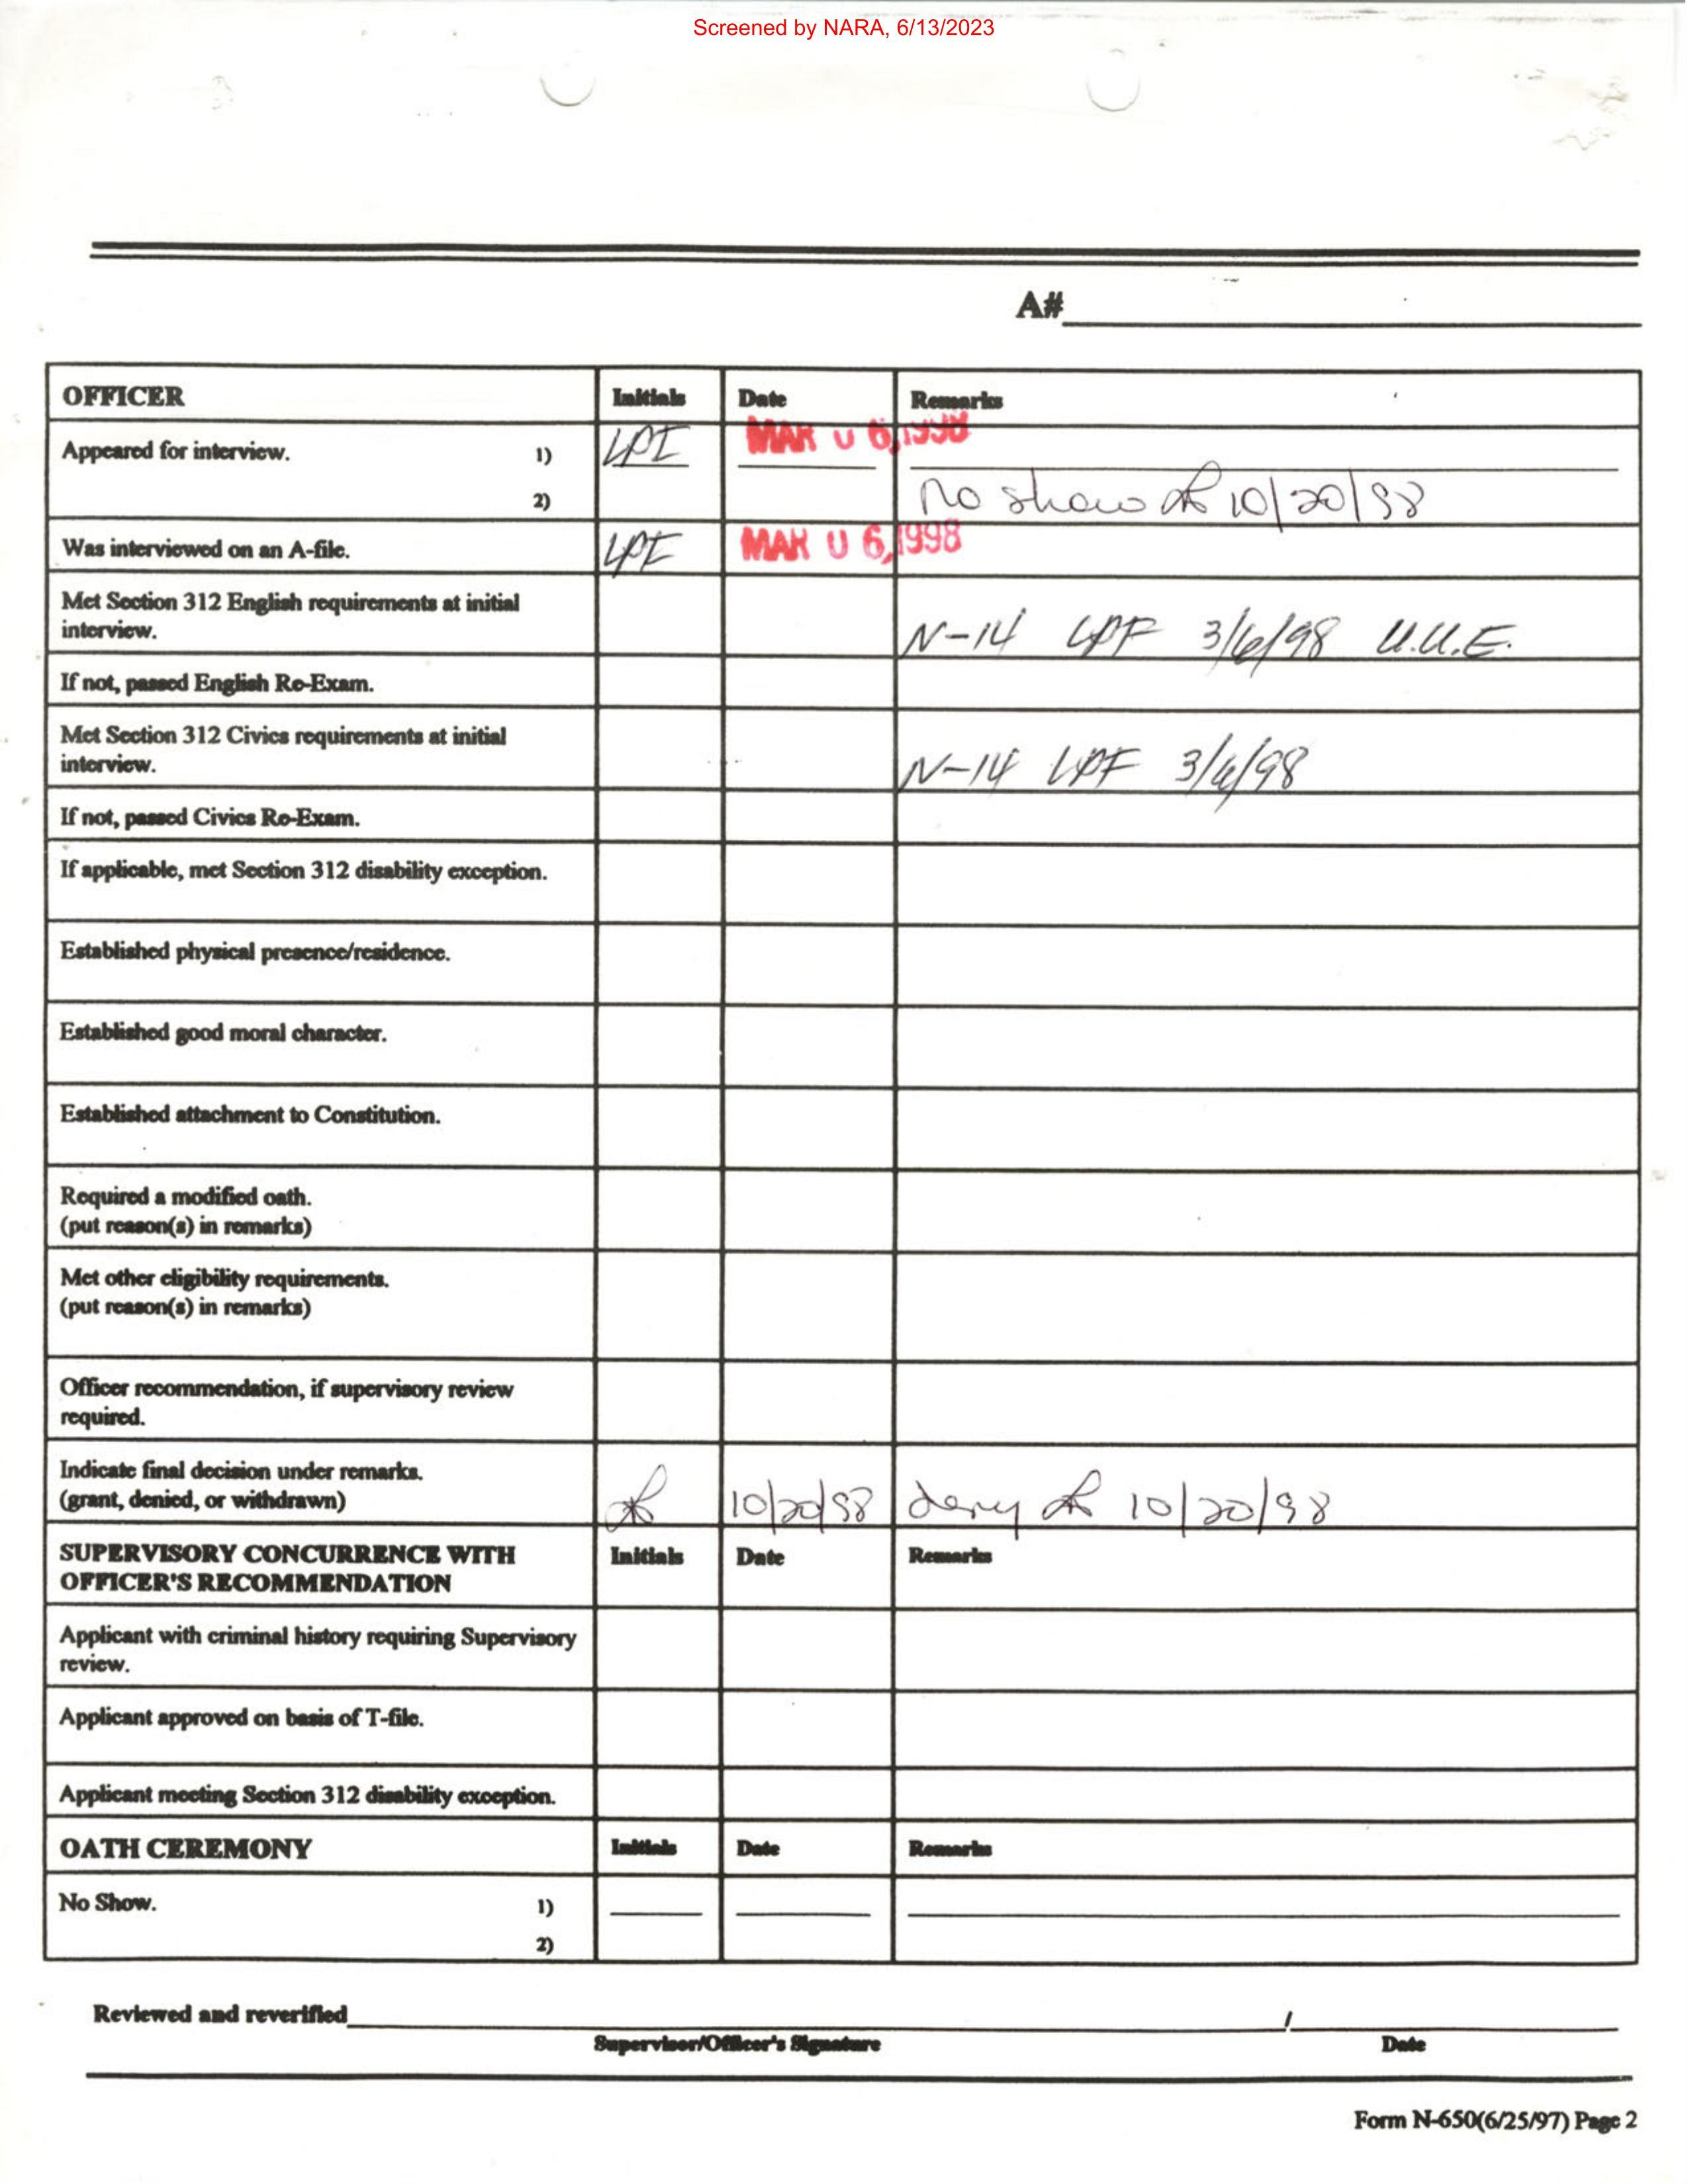 Screened by NARA, 6/13/2023
A#
OFFICER Initials Date Remarks
Appeared for interview. 1) LPF MAR 06,1998
2) No show 10/20/98
Was interviewed on an A-file. LPF MAR 06,1998
Met Section 312 English requirements at initial
interview. N-14 LPF 3/6/98 U.U.E.
If not, passed English Re-Exam.
Met Section 312 Civics requirements at initial
interview. N-14 LPF 3/6/98
If not, passed Civics Re-Exam.
If applicable, met Section 312 disability exception.
Established physical presence/residence.
Established good moral character.
Established attachment to Constitution.
Required a modified oath.
(put reason(s) in remarks)
Met other eligibility requirements.
(put reason(s) in remarks)
Officer recommendation, if supervisory review
required.
Indicate final decision under remarks.
(grant, denied, or withdrawn) 10/20/98 deny 10/20/98
SUPERVISORY CONCURRENCE WITH Initials Date Remarks
OFFICER'S RECOMMENDATION
Applicant with criminal history requiring Supervisory
review.
Applicant approved on basis of T-file.
Applicant meeting Section 312 disability exception.
OATH CEREMONY Initials Date Remarks
No Show. 1)
2)
Reviewed and reverified /
Supervisor/Officer's Signature Date
Form N-650(6/25/97) Page 2